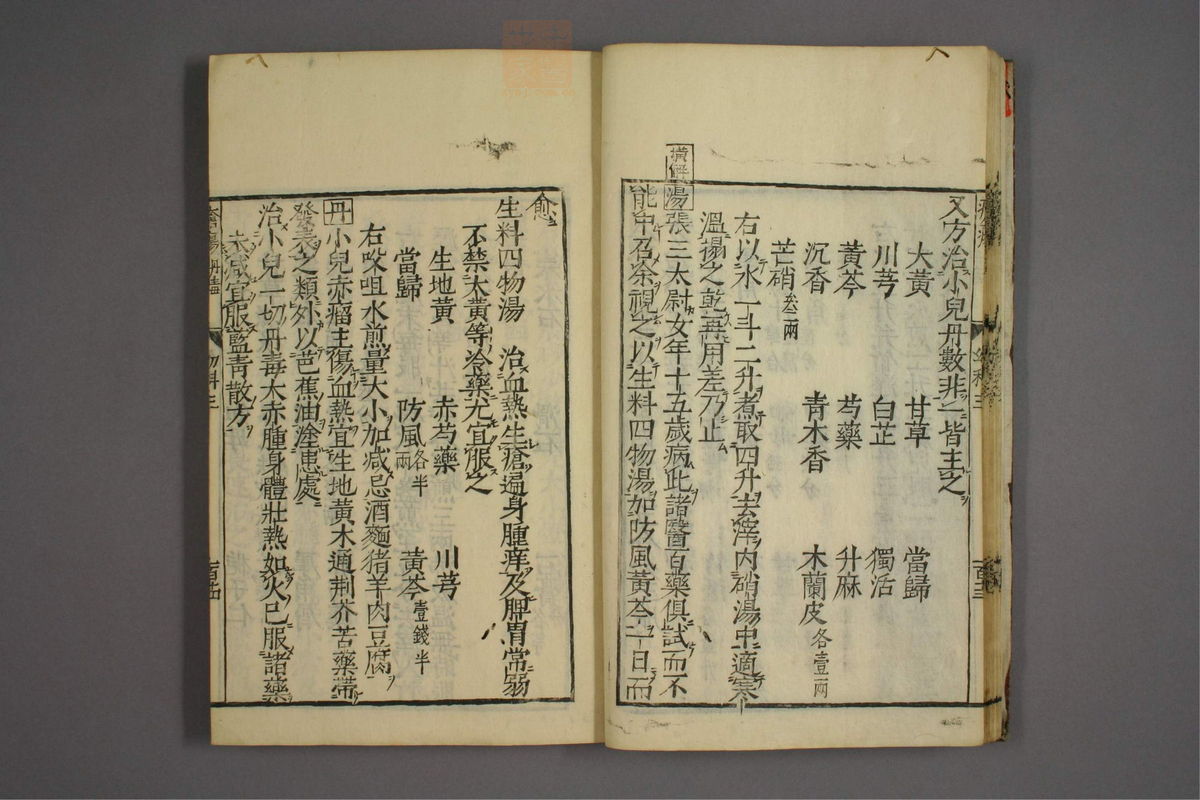 又方治小兒丹數非一皆主之
大黃 甘草 當歸
川芎 白芷 獨活
黃芩 芍藥 升麻
沉香 青木香 木蘭皮各壹兩
芒硝叁兩
右以水一斗二升煮取四升去滓内硝湯中適寒
溫搨之乾再用差乃止
湯張三太尉女年十五歲病此諸醫百藥俱試而不
能中召余視之以生料四物湯加防風黃芩一日而
愈
生料四物湯 治血熱生瘡遍身腫痒及脾胃常弱
不禁大黃等冷藥尤宜服之
生地黃 赤芍藥 川芎
當歸 防風各半兩 黃芩壹錢半
右㕮咀水煎量大小加減忌酒麵猪羊肉豆腐
丹小兒赤瘤主傷血熱宜生地黃木通荆芥苦藥帶
發表之類外以芭蕉油塗患處
治小兒一切丹毒大赤腫身體壯熱如火已服諸藥
未減宜服藍青散方